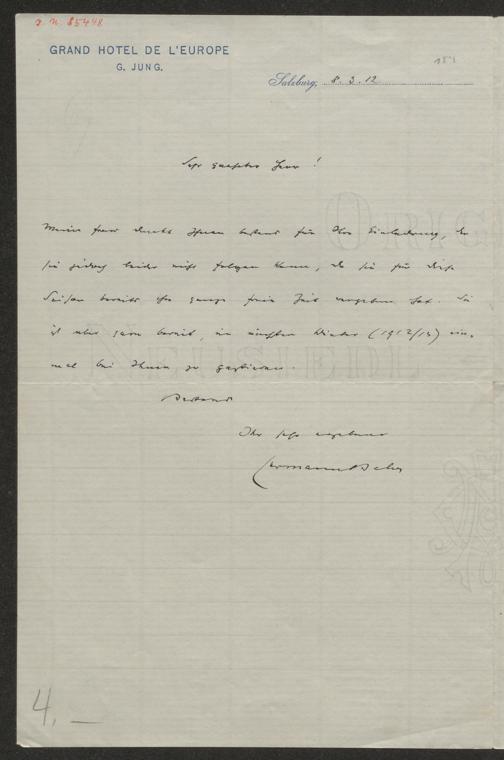 J.N. 85448
GRAND HOTEL DE L'EUROPE
G. JUNG.
151
Salzburg, 8.3.12
Sehr geehrter Herr!
Meine Frau dankt Ihnen bestens für Ihre Einladung, der
sie jedoch leider nicht folgen kann, da sie für diese
Saison bereits ihre ganze freie Zeit vergeben hat. Sie
ist aber gern bereit, im nächsten Winter (1912/13) ein-
mal bei Ihnen zu gastieren.
Ihr sehr ergebener
Hermann Bahr
4,—